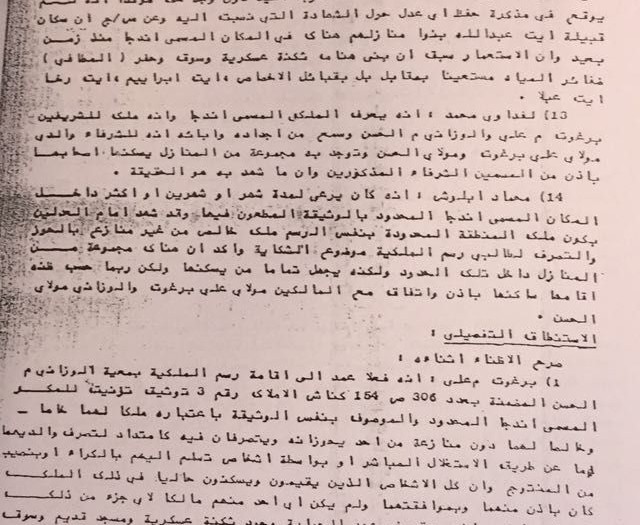 يوقع في مذكرة حفظ اي عدل حول الشهادة التي نسبت اليه وعن س/ج ان سكان
قبيلة ايت عبدالله بنوا منازلهم هناك في المكان المسمى اندجا منذ زمن
بعيد وان الاستعمار سبق ان بنى هناك ثكنة عسكرية وسوق وحفر (المطافي)
المياه مستعينا بمقابل بل بقبائل الاخصاص، ايت ابراييم، ايت رخا
ايت عبلا .
13) لغداوي محمد : انه يعرف الملكى المسمى اندجا وانه ملك للشريفين
برغوت م علي والوزاني م الحسن وسمع من اجداده وابائه انه للشرفاء والدي
مولاي علي برغوت ومولاي الحسن وتوجد به مجموعة من المنازل يسكنها اصحابها
باذن من المسمين الشرفاء المذكورين وان ما شهد به هو الحقيقة .
14) محماد ابلوش : انه كان يرعى لمدة شهر او شهرين او اكثر داخل
المكان المسمى اندجا المحدود بالوثيقة المطعون فيها وقد شهد امام العدلين
بكون ملك المنطقة المحدودة بنفس الرسم ملك خالص من غير منازع بالحوز
والتصرف لطالبي رسم الملكية موضوع الشكاية واكد ان هناك مجموعة من
المنازل داخل تلك الحدود ولكنه يجهل تماما من يسكنها ولكن ربما حسب ظنه
اقامها ساكنها باذن واتفاق مع المالكين مولاي علي برغوت والوزاني مولاي
الحسن .
الاستنطاق التفصيلي :
صرح الاظناء اثناءه :
1) برغوت م علي : انه فعلا عمد الى اقامة رسم الملكية بمعية الوزاني م
الحسن المضمنة بعدد 306 ص 154 كناش الاملاك رقم 3 توثيق تزنيت للمكان
المسمى اندجا المحدود والموصوف بنفس الوثيقة باعتباره ملكا لهما خاصا
وخالصا لهما دون منازعة من احد يحوزانه ويتصرفان فيه كامتداد لتصرف والديهما
عن طريق الاستغلال المباشر او بواسطة اشخاص تسلم اليهم بالكراء او بنصيب
من المنتوج وان كل الاشخاص الذين يقيمون ويسكنون حاليا في ذلك الملك
كان باذن منهما وبموافقتهما ولم يكن اي احد منهم مالكا لاي جزء من ذلك
وجود ثكنة عسكرية ومسجد قديم وسوق